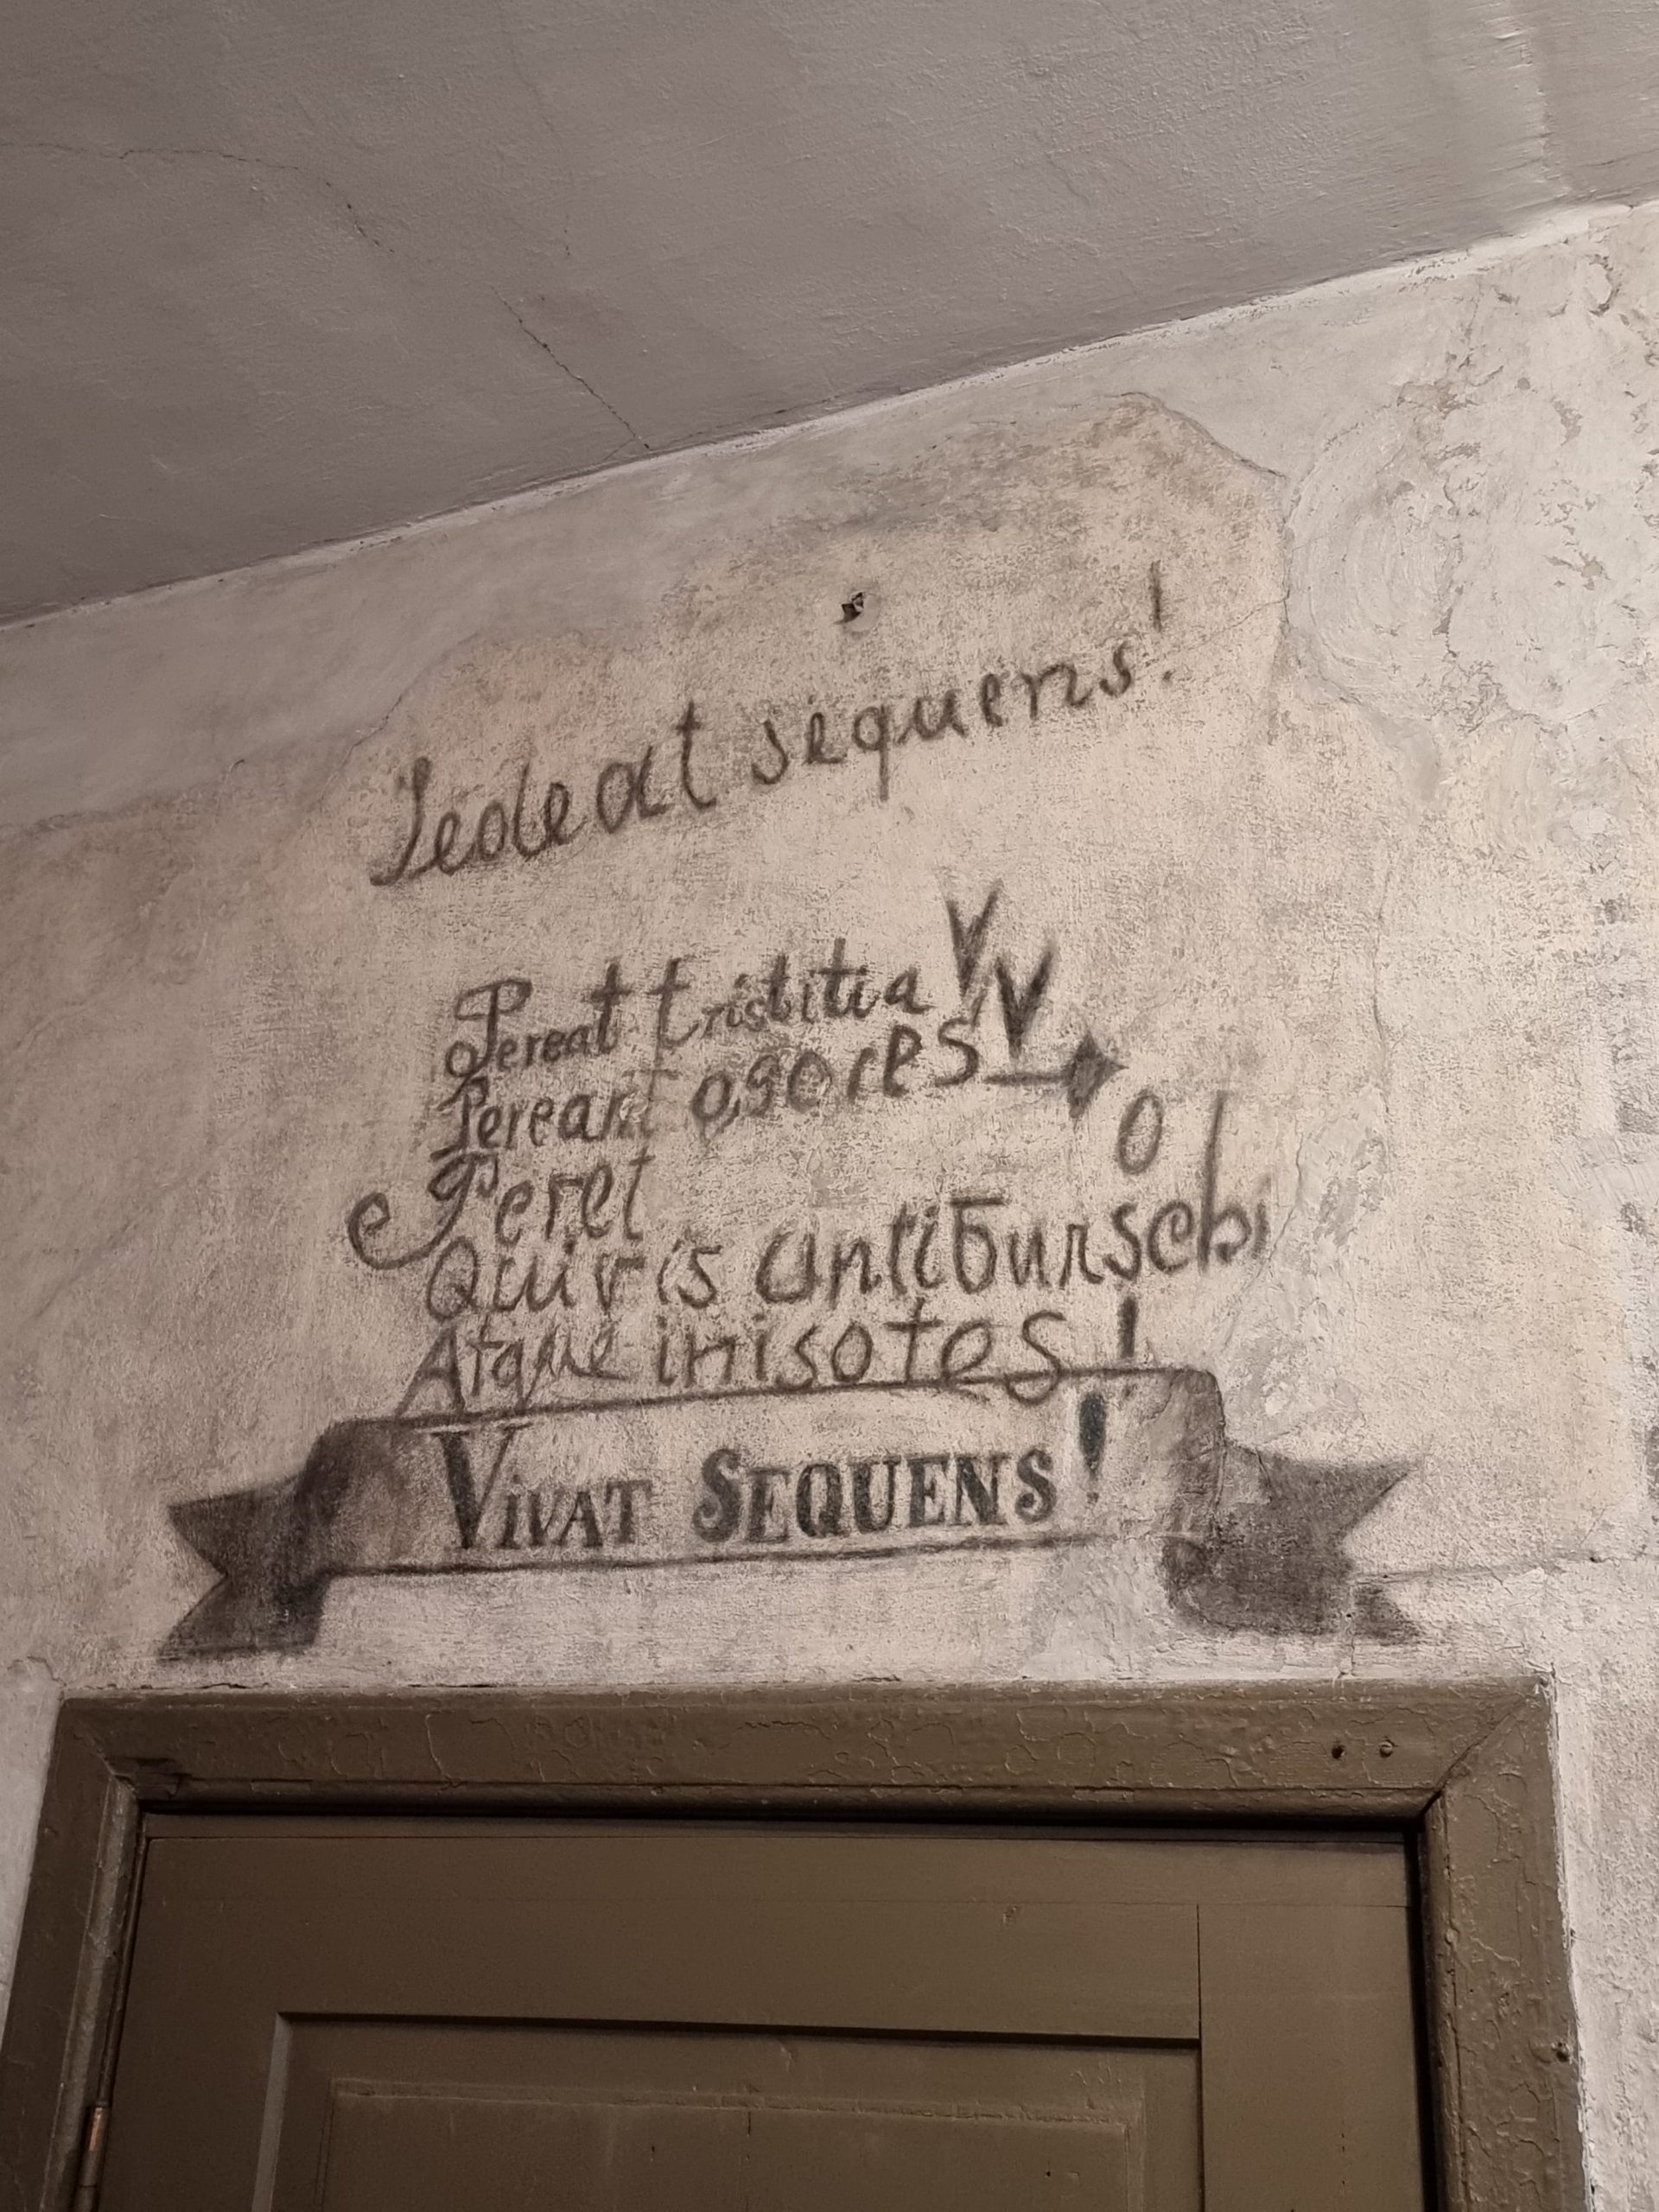 Sedeat sequens!
Pereat tristitia VV
Pereant osores
o
Peret
Quivis antiburschi
Atque inisotes!
VIVAT SEQUENS!